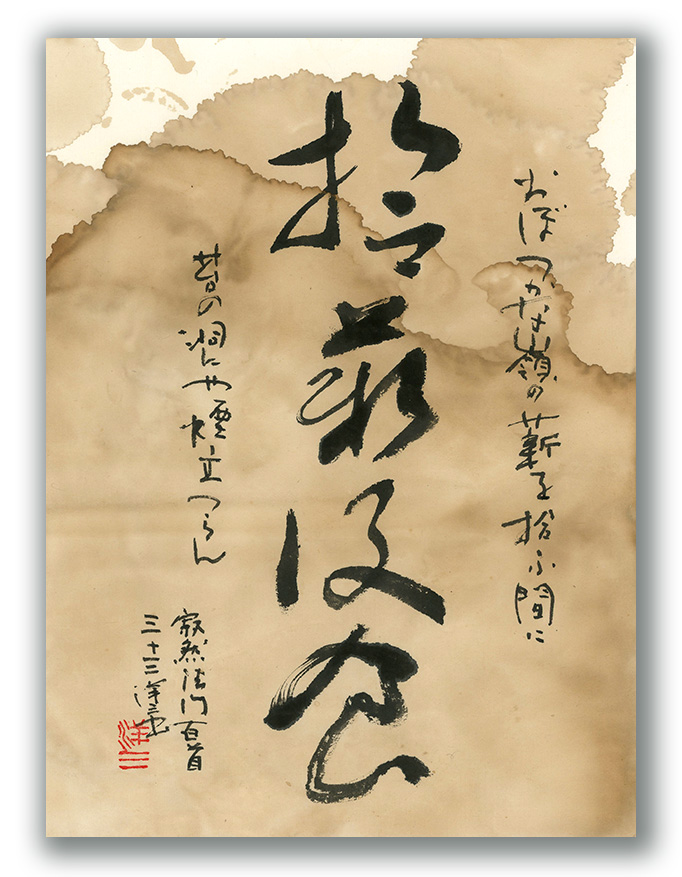 おぼつかな嶺の薪を拾ふ間に
拾薪設食
昔の洞にや煙立つらん
寂然法門百首
三十三 洋三書
洋三